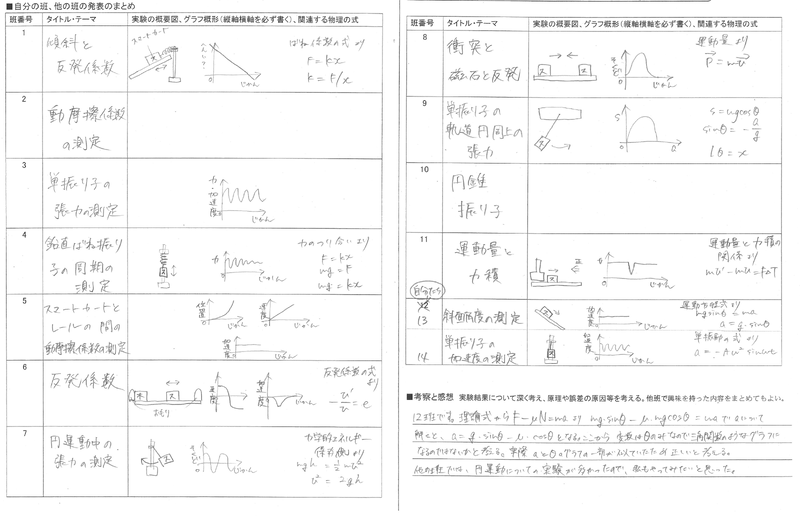 ■自分の班、他の班の発表のまとめ
班番号 タイトル・テーマ 実験の概要図、グラフ概形(縦軸横軸を必ず書く)、関連する物理の式
1 傾斜と
反発係数
スマートカート
じかん
ばね係数の式より
F=kx
k=F/x
2
動摩擦係数
の測定
3
単振り子の
張力の測定
力・加速度
じかん
4
鉛直ばね振り
子の周期の
測定
力
じかん
力のつり合いより
F=kx
mg=F
mg=kx
5
スマートカートと
レールの間の
動摩擦係数の測定
位置
じかん
速度
じかん
加速度
じかん
6
反発係数
おもり
速度
じかん
加速度
じかん
反発係数の式
より
-u'/u=e
7
円運動中の
張力の測定
じかん
力学的エネルギー
保存則より
mgh=1/2mv²
v²=2gh
班番号 タイトル・テーマ 実験の概要図、グラフ概形(縦軸横軸を必ず書く)、関連する物理の式
8
衝突と
磁石と反発
じかん
運動量より
P=mv
9
単振り子の
軌道円周上の
張力
S
a
S=mgcosθ
sinθ=-a/g
lθ=x
10
円錐
振り子
11
運動量と
力積
力
じかん
運動量と力積の
関係より
mv'-mv=FΔT
自分たち
12
13
斜面角度の測定
加速度
じかん
運動方程式より
mgsinθ=ma
a=g・sinθ
14
単振り子の
加速度の測定
加速度
じかん
単振動の式より
a=-Aω²sinωt
■考察と感想 実験結果について深く考え、原理や誤差の原因等を考える。他班で興味を持った内容をまとめてもよい。
12班です。理論式からF-μN=maより mg・sinθ-μ・mgcosθ=maでaについて
解くと、a=g・sinθ-μ・cosθとなる。ここから変数はθのみなので三角関数のようなグラフに
なるのではないかと考える。実際aとθのグラフの一部が
正しいと考える。
他の班では、円運動についての実験が
私もやってみたいと思った。